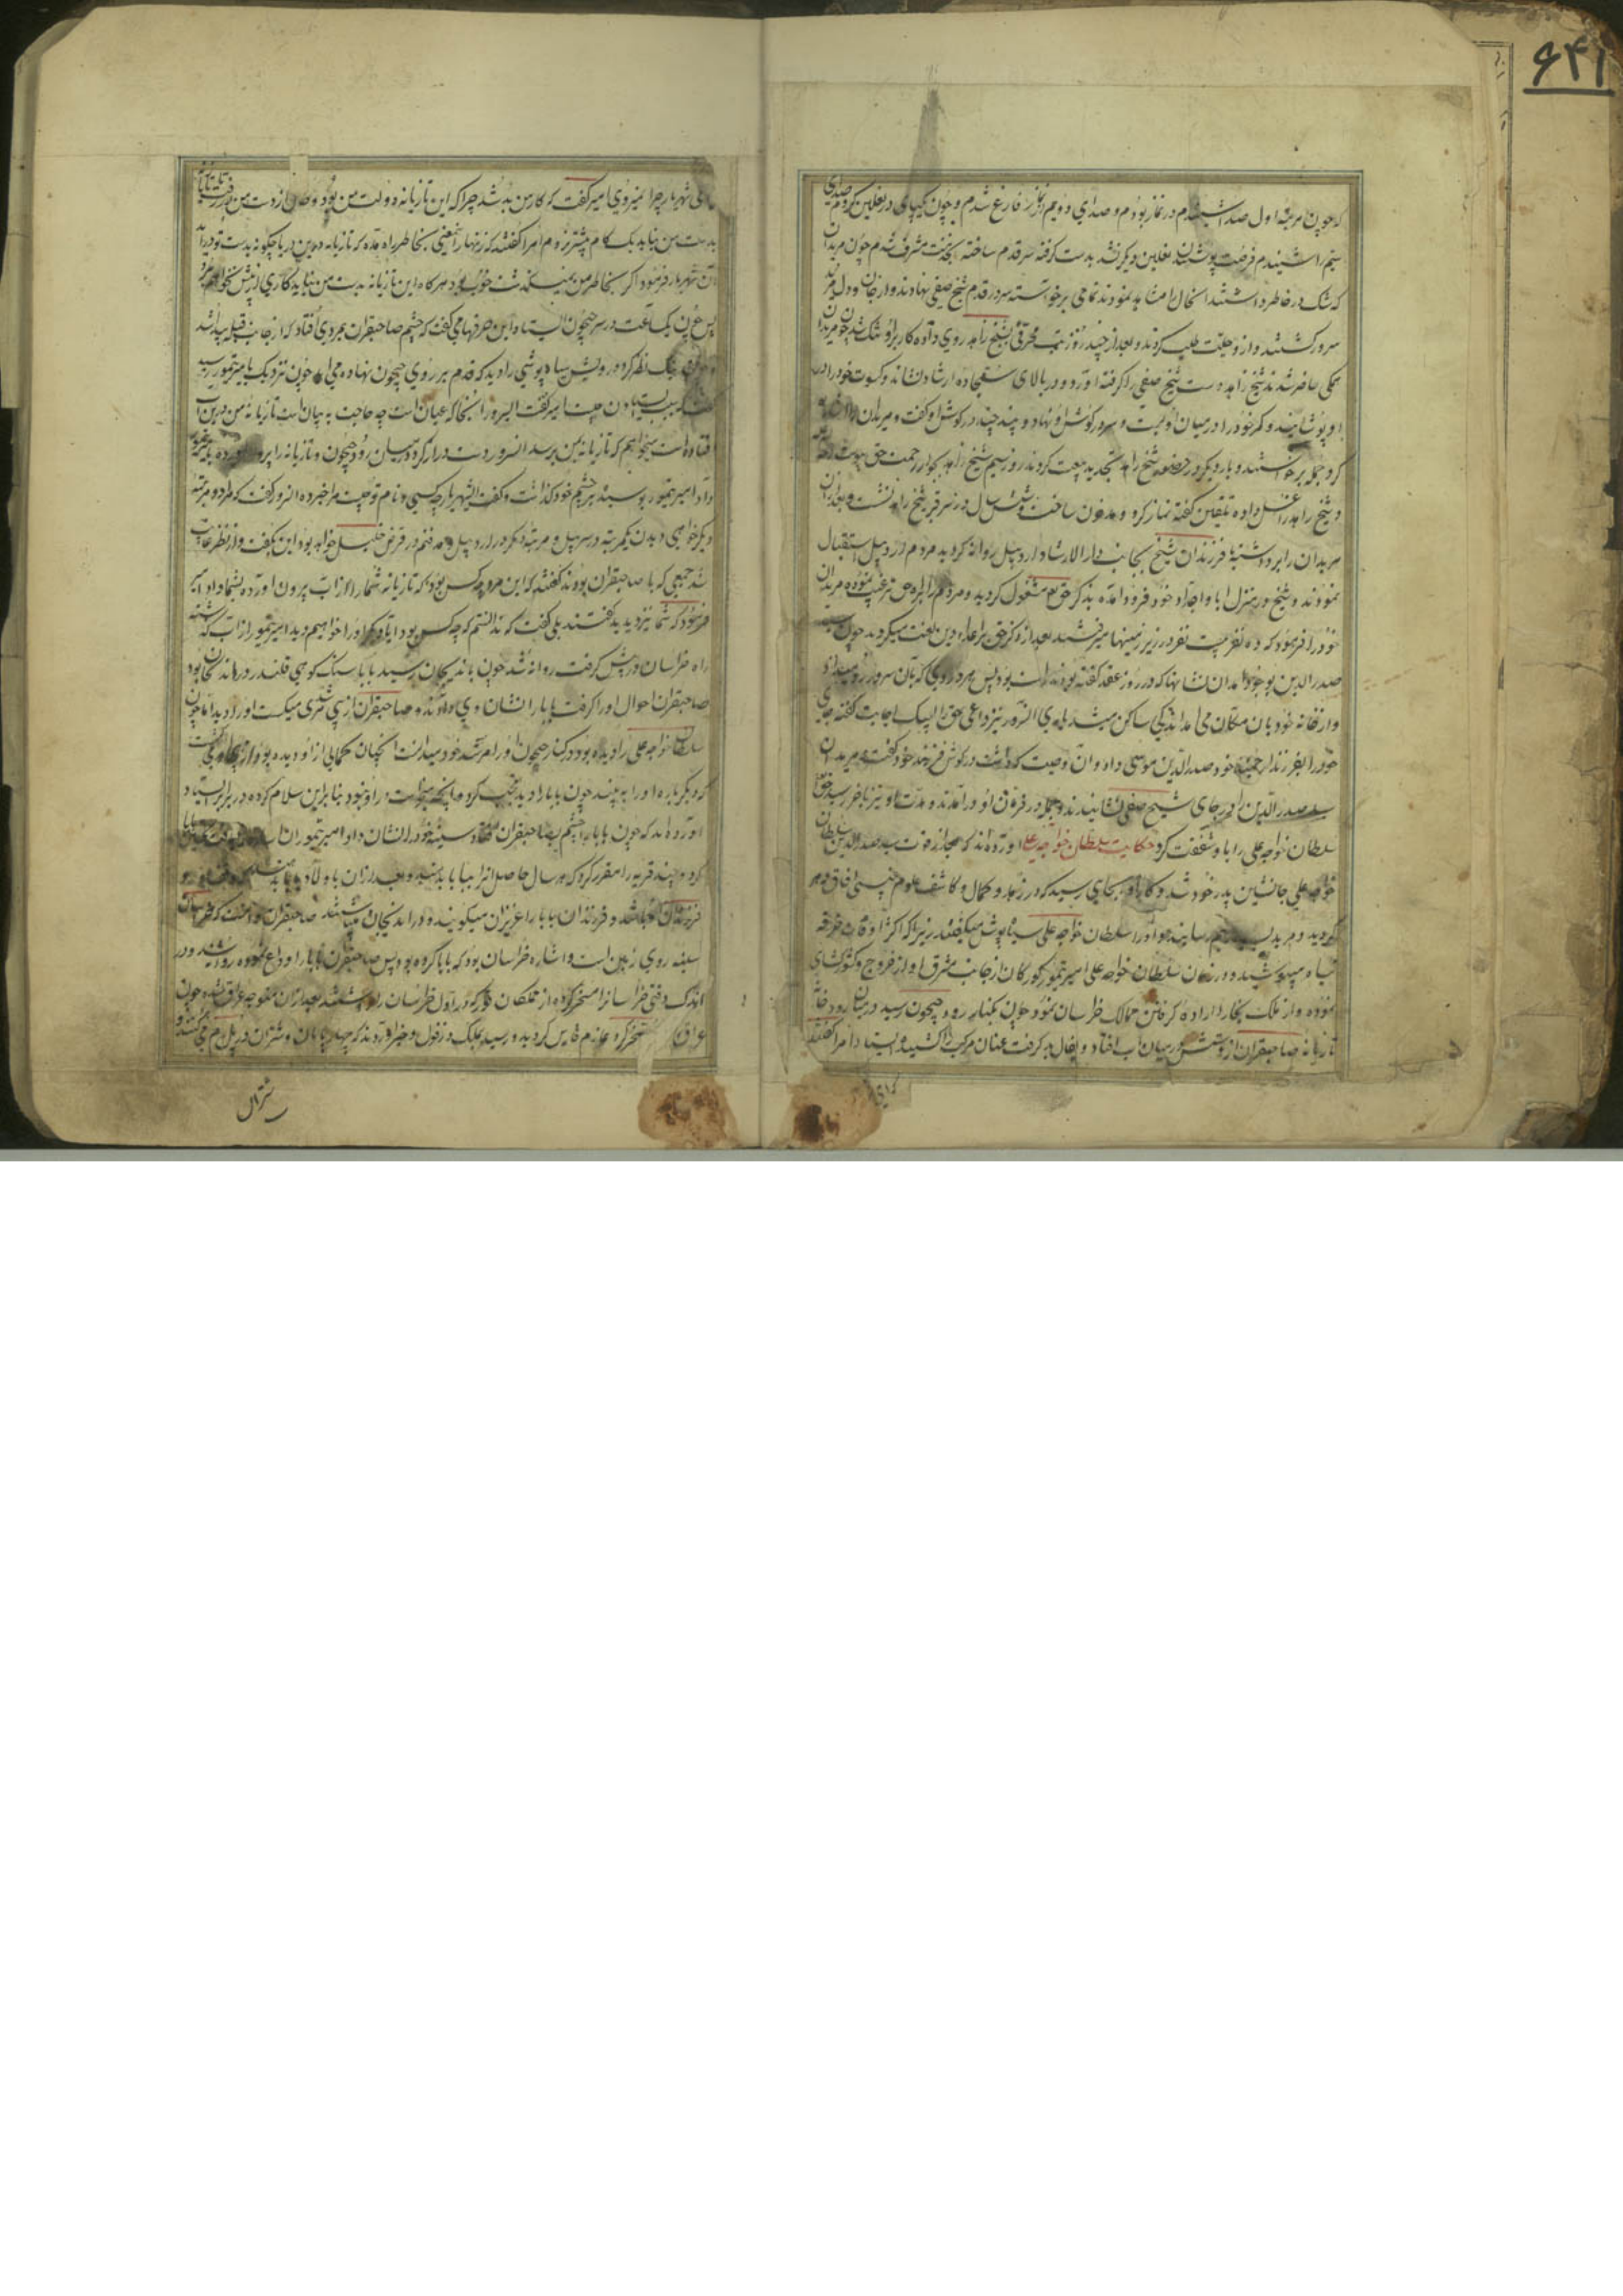 ۶۴۱
که چون مرتبه اول صدا شنیدم در نماز بودم و صدای دویم از نماز فارغ شدم و چون یکپای در نعلین کردم صدای
سیم را شنیدم فرصت پوشیدن نعلین دیگر نشد بدست گرفته سر قدم ساخته بخدمت مشرف شدم چون مریدان
که شک در خاطر داشتند انحال را مشاهده نمودند تمامی برخواسته سر در قدم شیخ صفی نهادند و از جان و دل مرید
سرور گشتند و از و همت طلب کردند و بعد از چند روز تب محرقی بشیخ زاهد روی داده کار برا و تنک شد چون مریدان
همکی حاضر شدند شیخ زاهد دست شیخ صفی را گرفته آورد و در بالای سجاده ارشاد نشاند و کسوت خود را در
او پوشانید و کمر خود را در میان او بست و سر در گوش او نهاد و چند چیز در گوش او گفت و مریدان را
کرد جمله برخواستند و بار دیگر در حضور شیخ زاهد تجدید بیعت کردند روز سیم شیخ زاهد بجوار رحمت حق پیوست
و شیخ زاهد را غسل داده تلقین گفته نماز کرد و مدفون ساخت و شش سال در سر قبر شیخ زاهد نشست و بعد از آن
مریدان را برداشته با فرزندان شیخ بجانب دار الارشاد اردبیل روانه گردید مردم اردبیل استقبال
نمودند و شیخ در منزل ابا و اجداد خود فرود آمده بذکر حق مشغول گردید و مردم را براه حق ترغیب نموده مریدان
خود را فرمود که ده نفر بیست نفر در زیر زمینها میرفتند بعد از ذکر حق بر اعداء دین لعنت میکردند چون سید
صدر الدین بوجود آمد آن نشانها که در روز عقد گفته بودند راست بود پس هر دردی که بان سرور رو میداد
و از خانه خود بان مکان می آمد اندکی ساکن میشد آن سرور نیز داعی حق را لبیک اجابت گفته جای
خود را بفرزند ارجمند خود صدر الدین موسی داد و آن وصیت که داشت در گوش فرزند خود گفت و مریدان
سید صدر الدین را در جای شیخ صفی نشانیدند و جمله در فرمان او در آمدند و مدت او نیز باخر رسید حق
سلطان خواجه علی را با و شفقت کرد حکایت سلطان خواجه علی آورده اند که بعد از فوت سید صدر الدین سلطان
خواجه علی جانشین پدر خود شد و کار او بجایی رسید که در زهد و کمال و کاشف علوم غیبی آفاق
گردید و مرید بسیار بهم رسانید و او را سلطان خواجه علی سیاه پوش میگفتند زیرا که اکثر اوقات خرقه
سیاه میپوشید و در زمان سلطان خواجه علی امیر تیمور کورکان از جانب مشرق آواز خروج و کشور گشای
نموده و از ملک بخارا اراده گرفتن ممالک خراسان نمود چون بکنار رود جیحون رسید در میان رود
تازیانه صاحبقران از دستش در میان آب افتاد و بفال بد گرفت عنان مرکب را کشید و ایستاد امرا گفتند
ای شهریار چرا نمیروی امیر گفت که کار من بد شد چرا که این تازیانه دولت من بود و حال از دست من بدر رفت تا تازیانه
بدست من نیاید یک گام پیشتر نروم امرا گفتند که زنهار این معنی بخاطر راه مده که تازیانه در این دریا چگونه بدست تو در آید
آن شهریار فرمود اگر بخاطر من نمیگذشت خوب بود هر گاه این تازیانه بدست من نیاید کاری از پیش نخواهم برد
پس چون یکساعت در سر جیحون ایستاد و این حرفها می گفت که چشم صاحبقران بمردی افتاد که از جانب قبله پیدا شد
نظر کرد درویش سیاه پوشی را دید که قدم بر روی جیحون نهاده می آید چون نزدیک بامیر تیمور رسید
گفت سبب ایستادن چیست امیر گفت ای سرور آنجا که عیان است چه حاجت به بیان است تازیانه من در این آب
افتاده است میخواهم که تازیانه بمن برسد آنسرور دست دراز کرد در میان رود جیحون و تازیانه را بیرون آورده بامیر تیمور
داد امیر تیمور بوسید بر چشم خود گذاشت و گفت ای شهریار چه کسی و نام تو چیست مرا خبر ده آنسرور گفت که مرا دو مرتبه
دیگر خواهی دیدن یکمرتبه در سر پل و مرتبه دیگر در اردبیل و مدفنم در قدس خلیل خواهد بود این بگفت و از نظر غایب
شد جمعی که با صاحبقران بودند گفتند که این مرد چه کس بود که تازیانه شما را از آب بیرون آورده بشما داد امیر
فرمود که شما نیز دیدید گفتند بلی گفت که ندانستم که چه کس بود آیا دیگر او را خواهیم دید امیر تیمور از آب گذشته
راه خراسان در پیش گرفت روانه شد چون باندیجان رسید بابا سنک کوهی قلندر در اندیجان بود
صاحبقران احوال او را گرفت بابا را نشان وی دادند و صاحبقران از پی مرشدی میگشت او را دید اما چون
سلطان خواجه علی را دیده بود در کنار جیحون و او را مرشد خود میدانست آنچنان کمالی از او دیده بود
که دیگر باره او را به بیند چون بابا را دید تعجب کرد و آنچه میخواست در او نبود بنابراین سلام کرده در برابر ایستاد
آورده اند که چون بابا را چشم بصاحبقران افتاد سینه خود را نشان داد امیر تیمور
کرد و چند قریه را مقرر کرد که هر سال حاصل آنرا ببابا بدهند و بعد از آن باولاد بابا
فرزندان و فرزندان بابا را عزیزان میگویند و در اندیجان میباشند صاحبقران دانست که خراسان
سینه روی زمین است و اشاره خراسان بود که بابا کرده بود پس صاحبقران بابا را وداع نموده روانه شد و در
اندک وقتی خراسان را مسخر کرده از
عراق مسخر کرد عازم فارس گردید و رسید بملک دزفول و خبر آوردند که
شتران